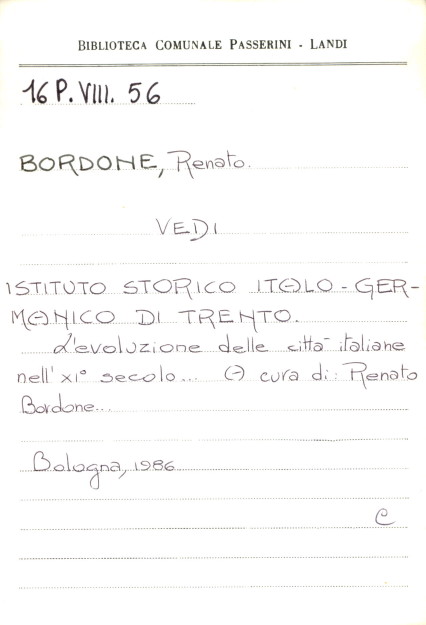 BIBLIOTECA COMUNALE PASSERINI - LANDI
16 P. VIII. 56
BORDONE, Renato.
VEDI
ISTITUTO STORICO ITALO - GER-
MANICO DI TRENTO.
L'evoluzione delle città italiane
nell' XI° secolo... A cura di: Renato
Bordone...
Bologna, 1986
C